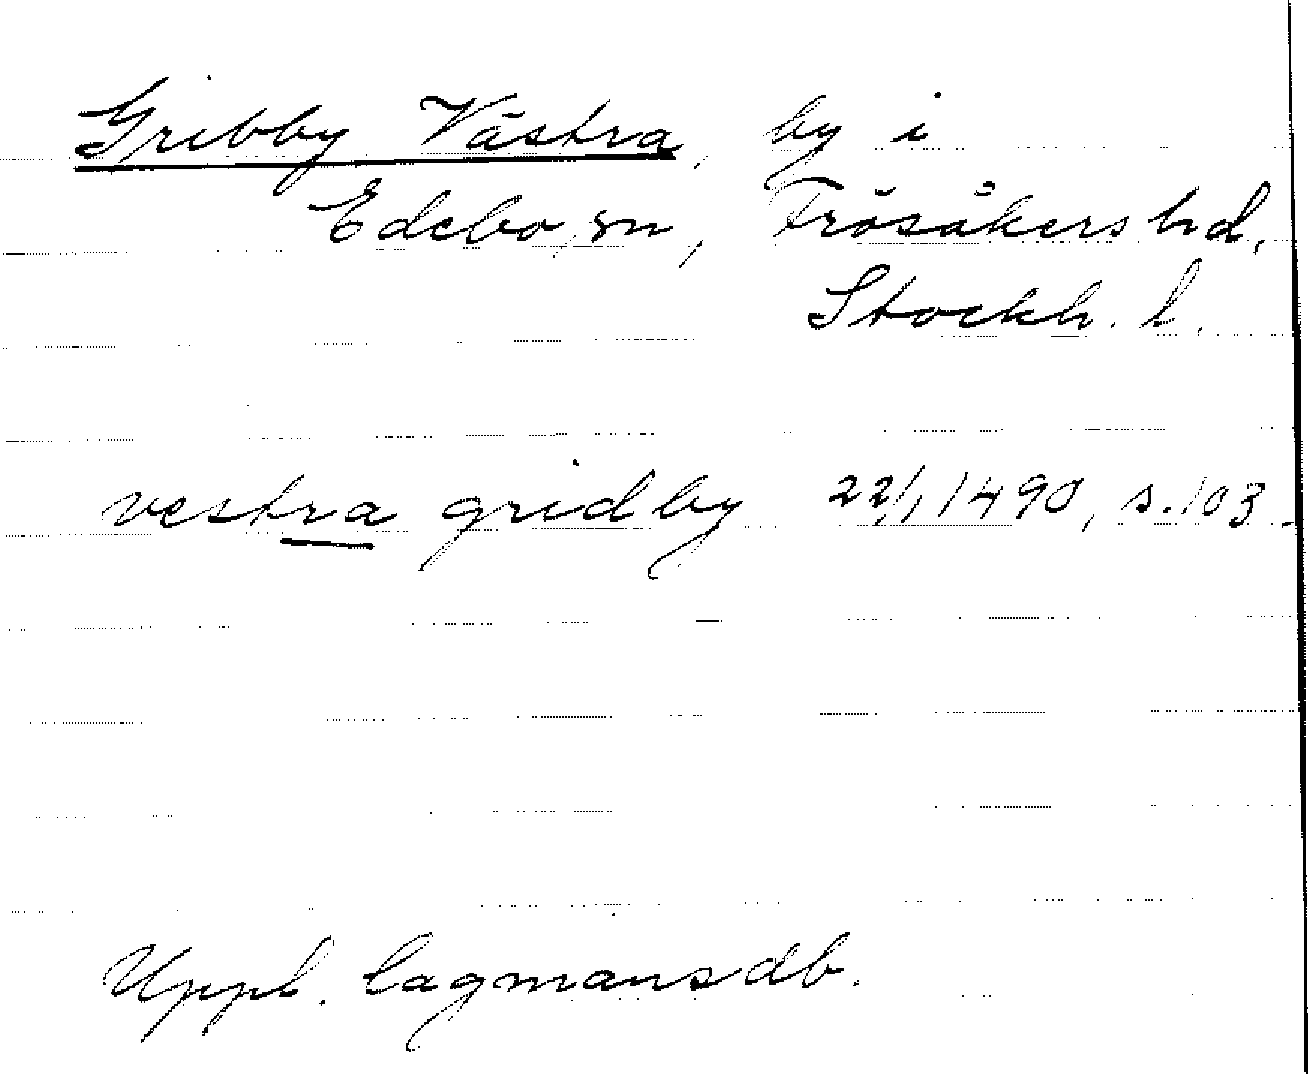 Gribby Västra, by i
Edebo sn, Frösåkers hd,
Stockh. l.
vestra gridby 22/1 1490, s. 103.
Uppl. lagmansdb.